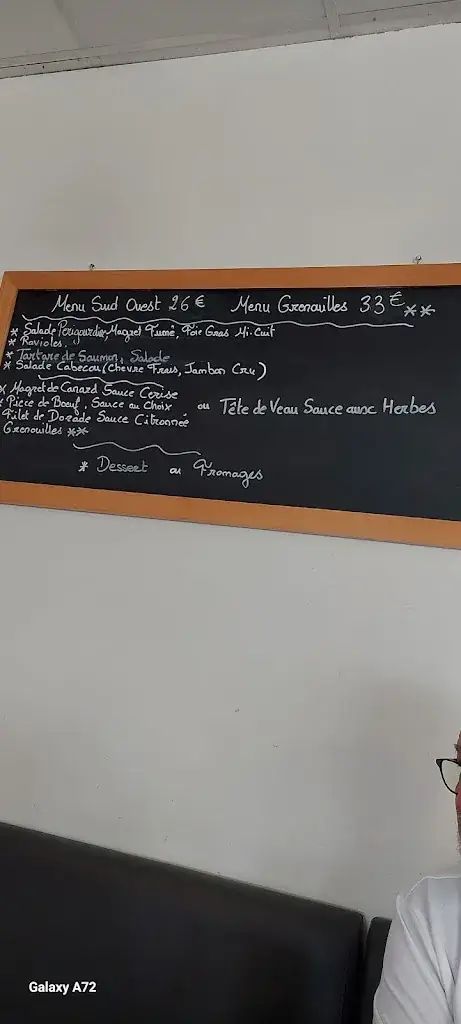 Menu Sud Ouest 26 € Menu Grenouilles 33 € **
* Salade Périgourdine, Magret Fumé, Foie Gras Mi-Cuit
* Ravioles.
* Tartare de Saumon, Salade
* Salade Cabecou (Chevre Frais, Jambon Cru)
* Magret de Canard Sauce Cerise
* Pièce de Boeuf, Sauce au Choix ou Tête de Veau Sauce aux Herbes
Filet de Dorade Sauce Citronnée
Grenouilles **
* Dessert ou Fromages
Galaxy A72